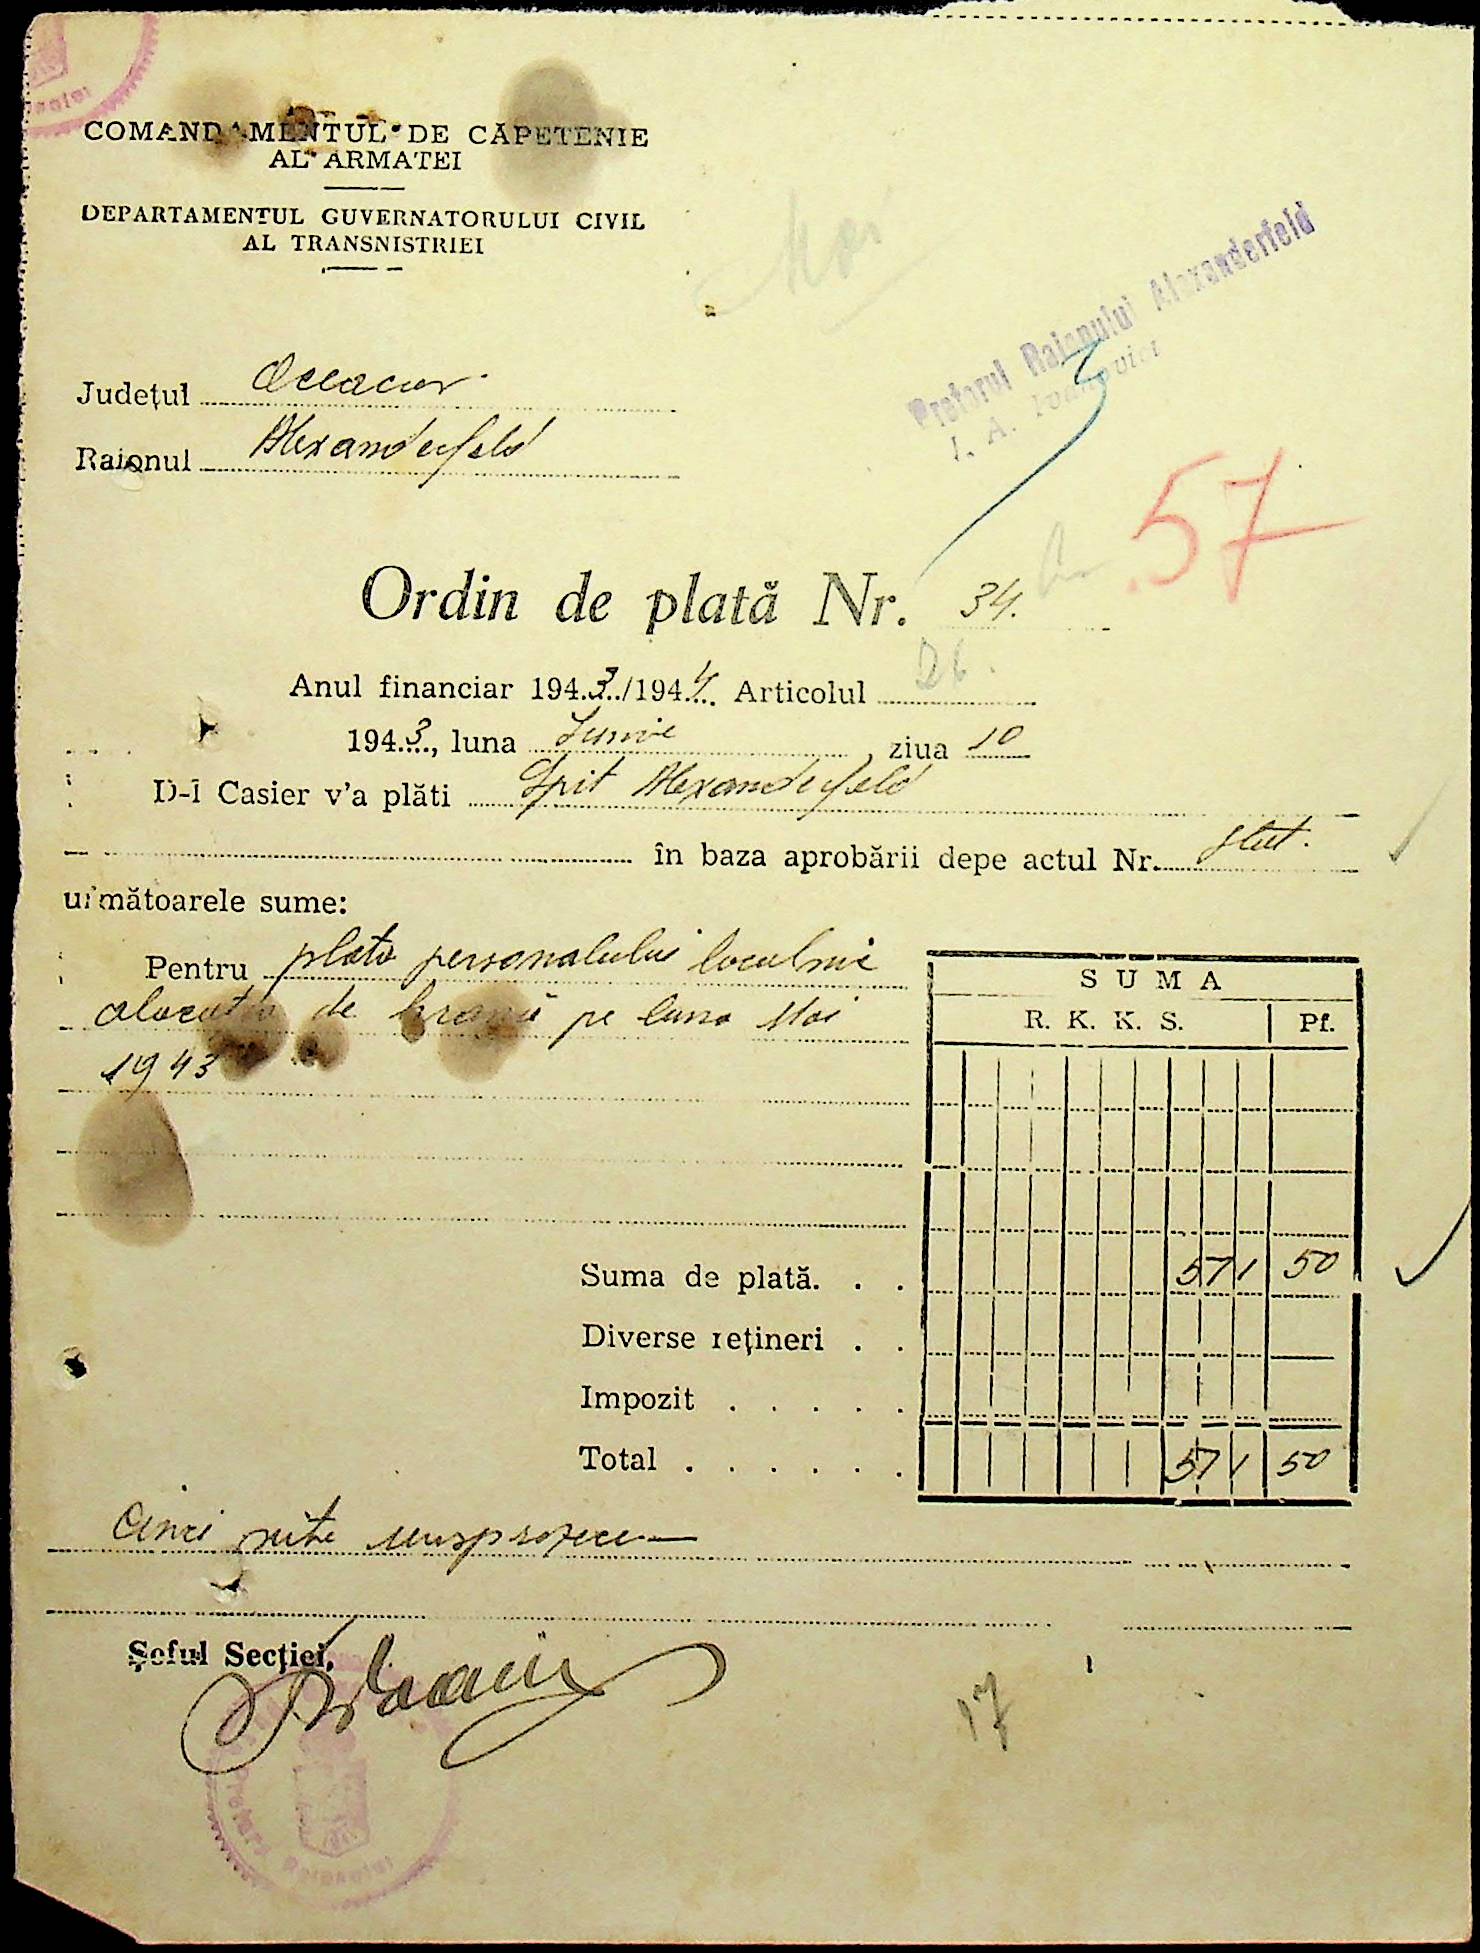 COMANDAMENTUL DE CAPETENIE
AL ARMATEI
DEPARTAMENTUL GUVERNATORULUI CIVIL
AL TRANSNISTRIEI
Mai
Pretorul Raionului Alexanderfeld
I. A.
Județul Oceacov
Raionul Alexanderfeld
3
57
Ordin de plată Nr. 34.
26.
Anul financiar 1943/1944 Articolul
1943, luna Iunie, ziua 10
D-l Casier v'a plăti Spit Alexanderfeld
în baza aprobării depe actul Nr. stat.
următoarele sume:
Pentru plata personalului
alocatia de hrană pe luna Mai
1943
SUMA
R. K. K. S. Pf.
Suma de plată. . . 571 50
Diverse rețineri . .
Impozit . . . . .
Total . . . . . . 571 50
Cinci sute
Șeful Secției,
17
Pretura Raionului